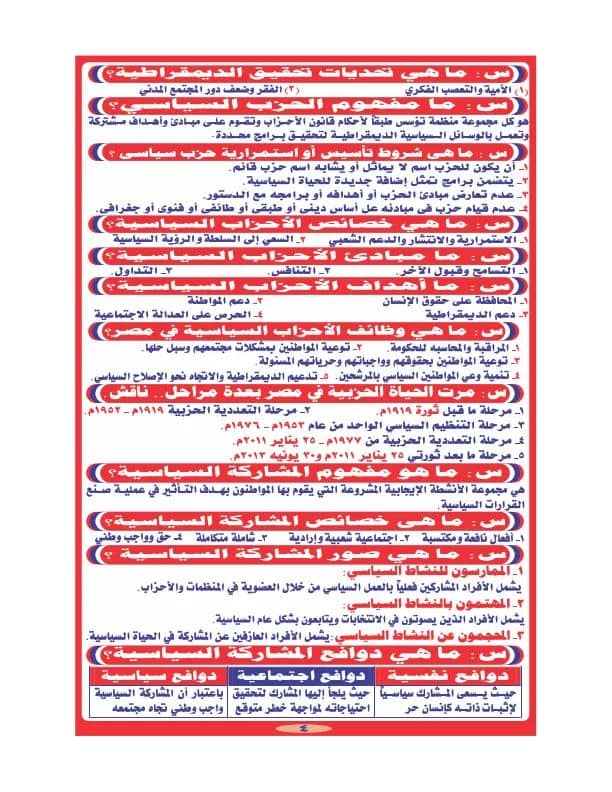 س : ما هي تحديات تحقيق الديمقراطية؟
(١) الأمية والتعصب الفكري (٢) الفقر وضعف دور المجتمع المدني
س : ما مفهوم الحزب السياسي؟
هو كل مجموعة منظمة تؤسس طبقاً لأحكام قانون الأحزاب وتقوم على مبادئ وأهداف مشتركة
وتعمل بالوسائل السياسية الديمقراطية لتحقيق برامج محددة.
س : ما هى شروط تأسيس أو استمرارية حزب سياسى ؟
١ـ أن يكون للحزب اسم لا يماثل أو يشابه اسم حزب قائم.
٢ـ يتضمن برامج تمثل إضافة جديدة للحياة السياسية.
٣ـ عدم تعارض مبادئ الحزب أو أهدافه أو برامجه مع الدستور.
٤ـ عدم قيام حزب فى مبادئه عل أساس دينى أو طبقى أو طائفى أو فئوى أو جغرافى.
س : ما هي خصائص الأحزاب السياسية؟
١ـ الاستمرارية والانتشار والدعم الشعبي ٢ـ السعي إلى السلطة و الرؤية السياسية
س : ما مبادئ الأحزاب السياسية؟
١ـ التسامح وقبول الآخر. ٢ـ التنافس. ٣ـ التداول.
س : ما أهداف الأحزاب السياسية؟
١ـ المحافظة على حقوق الإنسان ٢ـ دعم المواطنة
٣ـ دعم الديمقراطية ٤ـ الحرص على العدالة الاجتماعية
س : ما هي وظائف الأحزاب السياسية في مصر؟
١ـ المراقبة والمحاسبه للحكومة. ٢ـ توعية المواطنين بمشكلات مجتمعهم وسبل حلها.
٣ـ توعية المواطنين بحقوقهم وواجباتهم وحرياتهم المسئولة.
٤ـ تنمية وعي المواطنين السياسي بالمرشحين. ٥ـ تدعيم الديمقراطية والاتجاه نحو الإصلاح السياسي.
س : مرت الحياة الحزبية في مصر بعدة مراحل.. ناقش.
١ـ مرحلة ما قبل ثورة ١٩١٩م. ٢ـ مرحلة التعددية الحزبية ١٩١٩م ـ ١٩٥٢م.
٣ـ مرحلة التنظيم السياسي الواحد من عام ١٩٥٣م ـ ١٩٧٦م.
٤ـ مرحلة التعددية الحزبية من ١٩٧٧م ـ ٢٥ يناير ٢٠١١م.
٥ـ مرحلة ما بعد ثورتي ٢٥ يناير ٢٠١١م و٣٠ يونيه ٢٠١٣م.
س : ما هو مفهوم المشاركة السياسية؟
هي مجموعة الأنشطة الإيجابية المشروعة التي يقوم بها المواطنون بهدف التأثير في عملية صنع
القرارات السياسية.
س : ما هى خصائص المشاركة السياسية؟
١ـ أفعال نافعة ومكتسبة ٢ـ اجتماعية شعبية وإرادية ٣ـ شاملة متكاملة ٤ـ حق وواجب وطني
س : ما هي صور المشاركة السياسية ؟
١ـ الممارسون للنشاط السياسي:
يشمل الأفراد المشاركين فعلياً بالعمل السياسي من خلال العضوية في المنظمات والأحزاب.
٢ـ المهتمون بالنشاط السياسي:
يشمل الأفراد الذين يصوتون في الانتخابات ويتابعون بشكل عام السياسية.
٣ـ المحجمون عن النشاط السياسي: يشمل الأفراد العازفين عن المشاركة في الحياة السياسية.
س : ما هي دوافع المشاركة السياسية؟
دوافع نفسية دوافع اجتماعية دوافع سياسية
حيث يسعى المشارك سياسياً حيث يلجأ إليها المشارك لتحقيق باعتبار أن المشاركة السياسية
لإثبات ذاته كإنسان حر احتياجاته لمواجهة خطر متوقع واجب وطني تجاه مجتمعه
٤